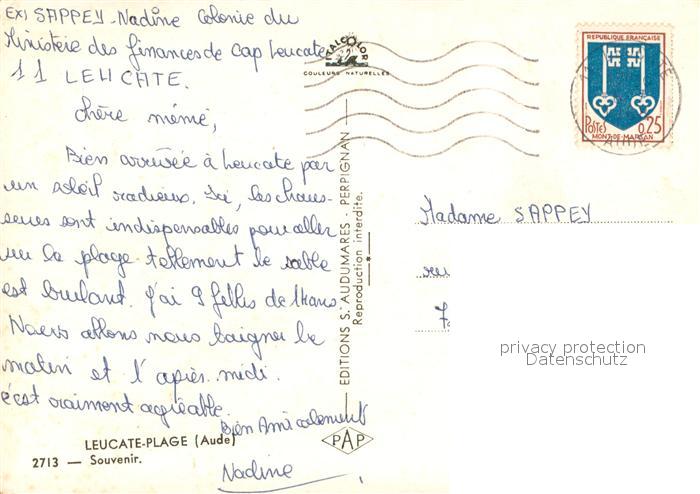 EXP SAPPEY-Nadine Colonie du
Ministère des finances de Cap Leucate
11 LEUCATE.
Chère mémé,
Bien arrivée à Leucate par
un soleil radieux. Ici, les chaus-
sures sont indispensables pour aller
sur la plage tellement le sable
est brulant. J'ai 9 filles de 14 ans
Nous allons nous baigner le
matin et l'après-midi.
c'est vraiment agréable.
Bien Amicalement
Nadine
LEUCATE-PLAGE (Aude)
2713 — Souvenir.
ITALCOLOR
COULEURS NATURELLES
EDITIONS S. AUDUMARES - PERPIGNAN
Reproduction interdite.
PAP
REPUBLIQUE FRANÇAISE
POSTES 0,25
MONT-DE-MARSAN
Madame SAPPEY
privacy protection
Datenschutz